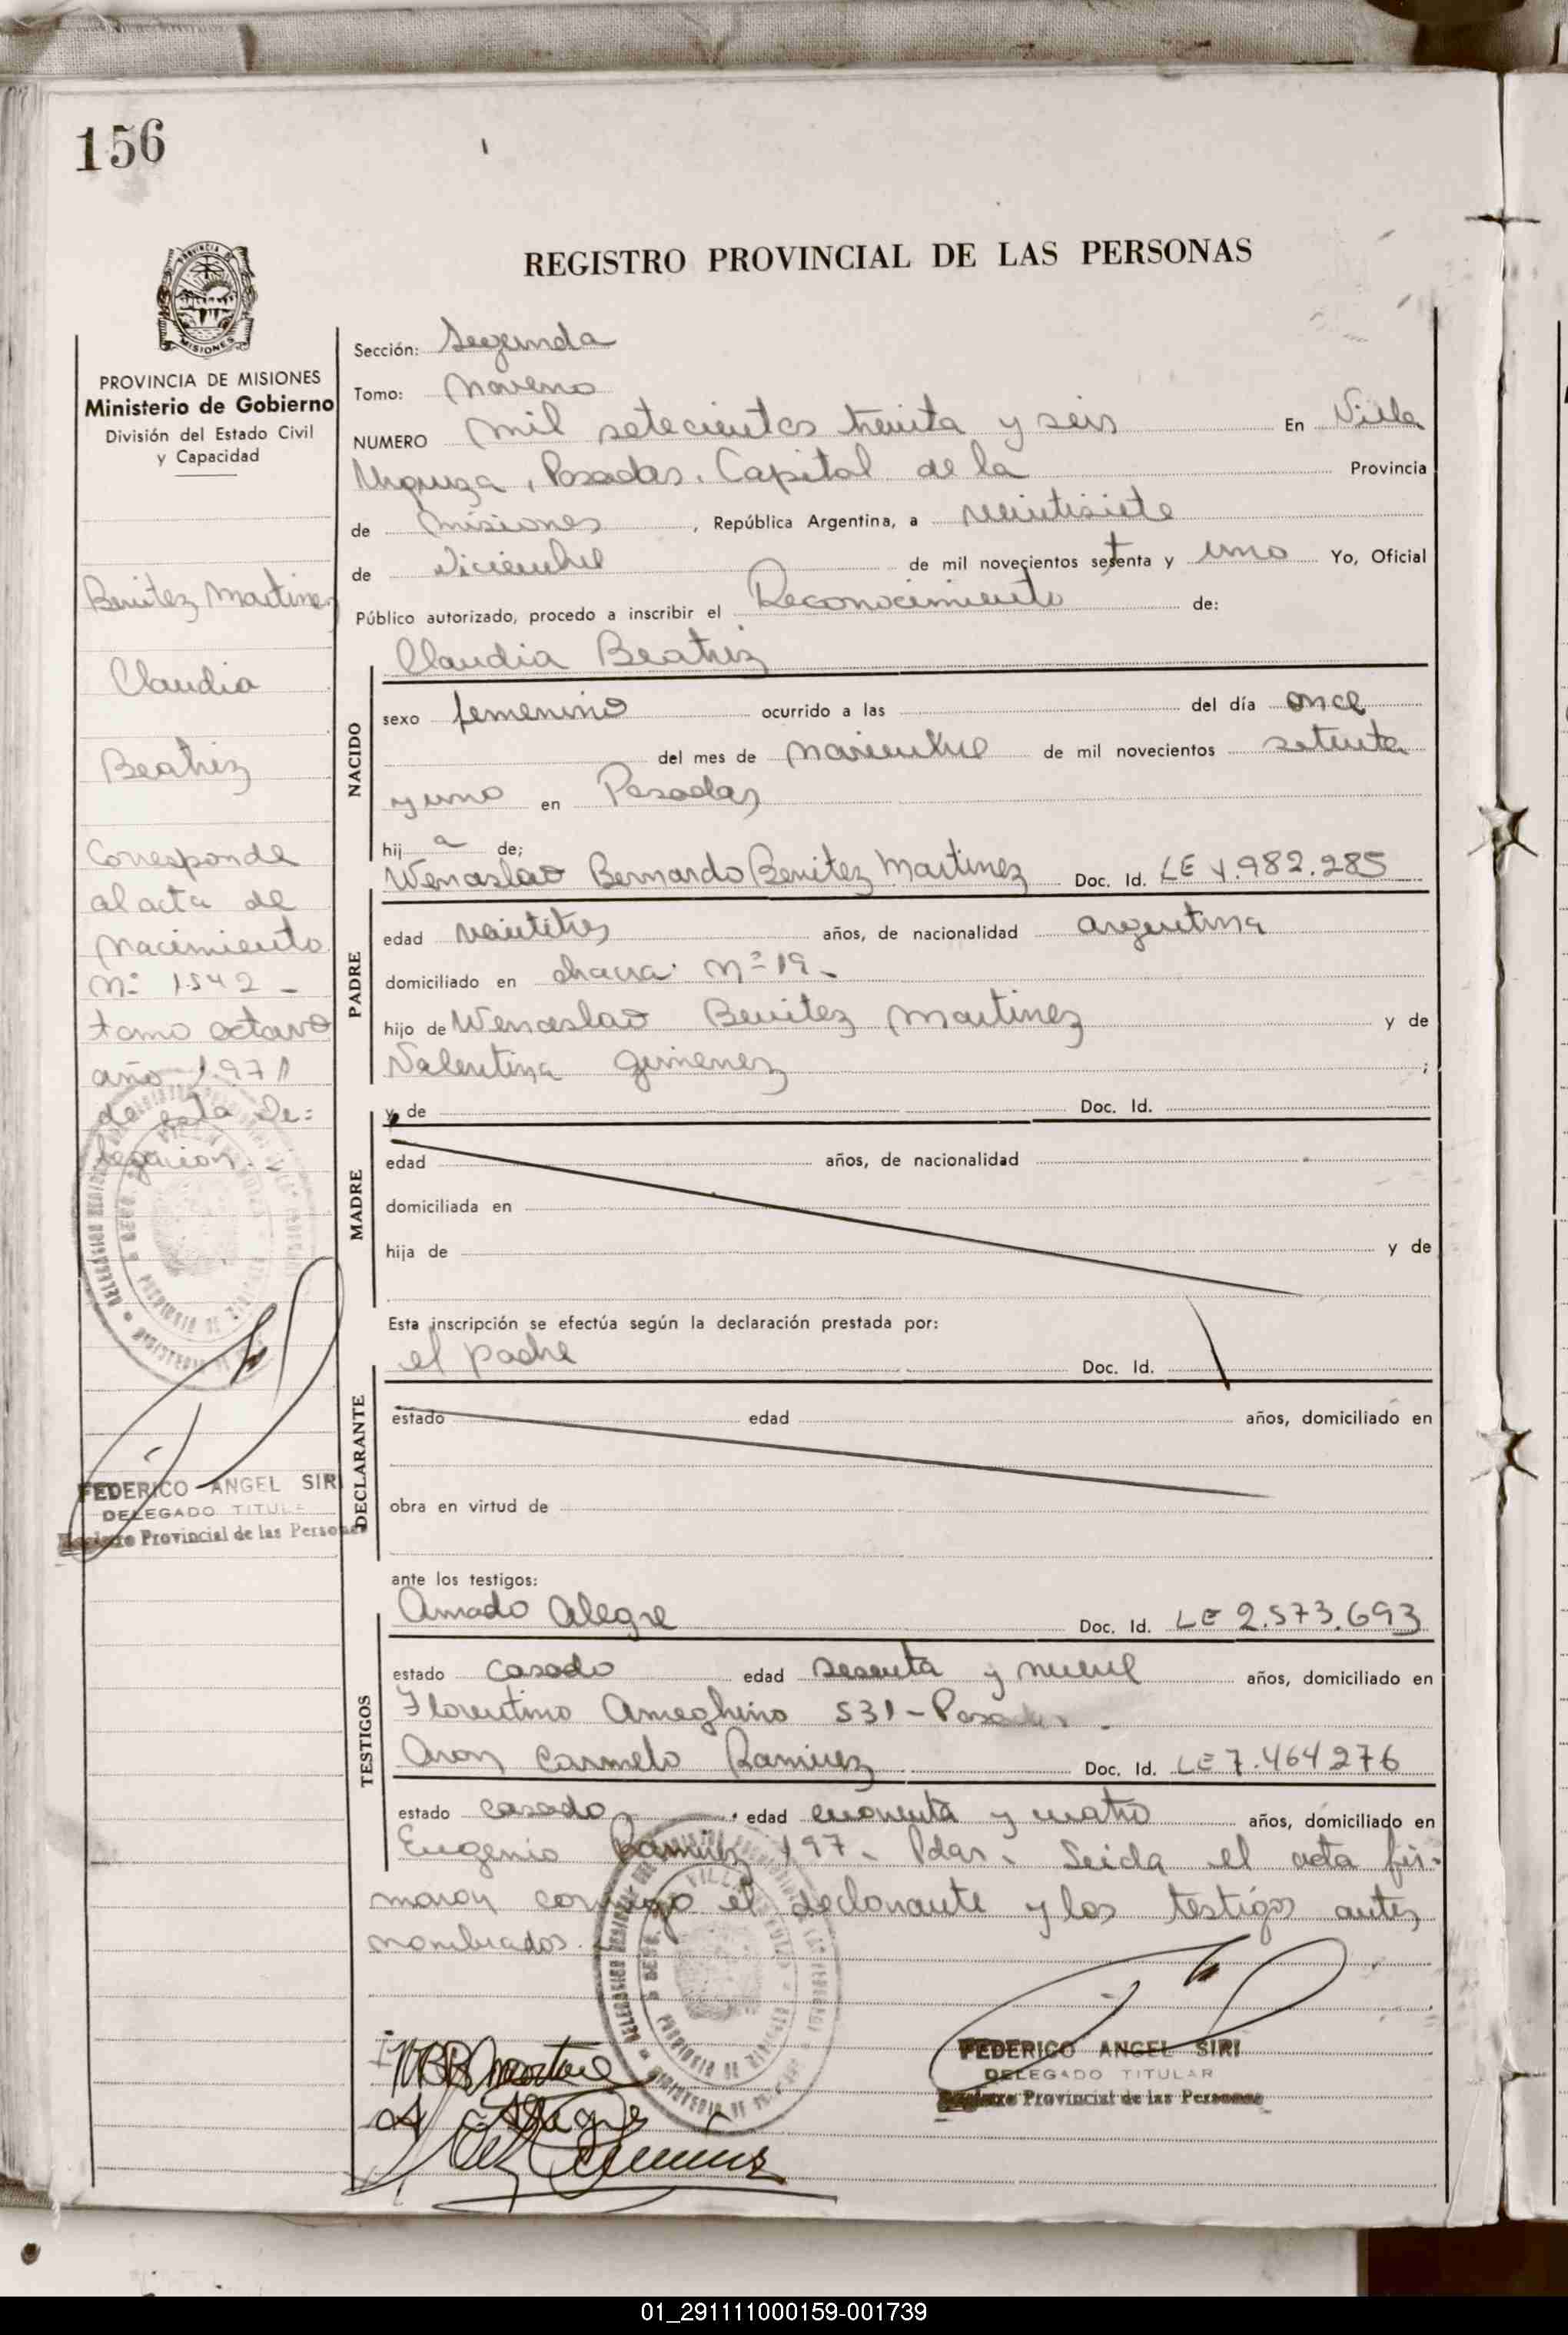 156
REGISTRO PROVINCIAL DE LAS PERSONAS
MISIONES
PROVINCIA DE MISIONES
Ministerio de Gobierno
División del Estado Civil
y Capacidad
Benitez Martinez
Claudia
Beatriz
Corresponde
al acta de
nacimiento
Nº 1542 -
tomo octavo
año 1971
de esta De=
legacion.
FEDERICO ANGEL SIRI
DELEGADO TITULAR
Registro Provincial de las Personas
Sección: Segunda
Tomo: Noveno
NUMERO mil setecientos treinta y seis En Villa
Urquiza, Posadas, Capital de la Provincia
de Misiones, República Argentina, a veintisiete
de Diciembre de mil novecientos setenta y uno Yo, Oficial
Público autorizado, procedo a inscribir el Reconocimiento de:
Claudia Beatriz
NACIDO
sexo femenino ocurrido a las del día once
del mes de noviembre de mil novecientos setenta
y uno en Posadas
hij a de;
Wenceslao Bernardo Benitez Martinez Doc. Id. LE 982.285
PADRE
edad veintitres años, de nacionalidad argentina
domiciliado en chacra Nº 19 -
hijo de Wenceslao Benitez Martinez y de
Valentina Gimenez ;
y de Doc. Id.
MADRE
edad años, de nacionalidad
domiciliada en
hija de y de
Esta inscripción se efectúa según la declaración prestada por:
el padre Doc. Id.
DECLARANTE
estado edad años, domiciliado en
obra en virtud de
ante los testigos:
Amado Alegre Doc. Id. LE 2.573.693
TESTIGOS
estado casado edad sesenta y nueve años, domiciliado en
Florentino Ameghino 531 - Posadas.
Aron Carmelo Ramirez Doc. Id. LE 7.464276
estado casado edad cuarenta y cuatro años, domiciliado en
Eugenio Ramirez 197 - Pdas. Leida el acta fir-
maron conmigo el declarante y los testigos antes
nombrados.
FEDERICO ANGEL SIRI
DELEGADO TITULAR
Registro Provincial de las Personas
01_291111000159-001739